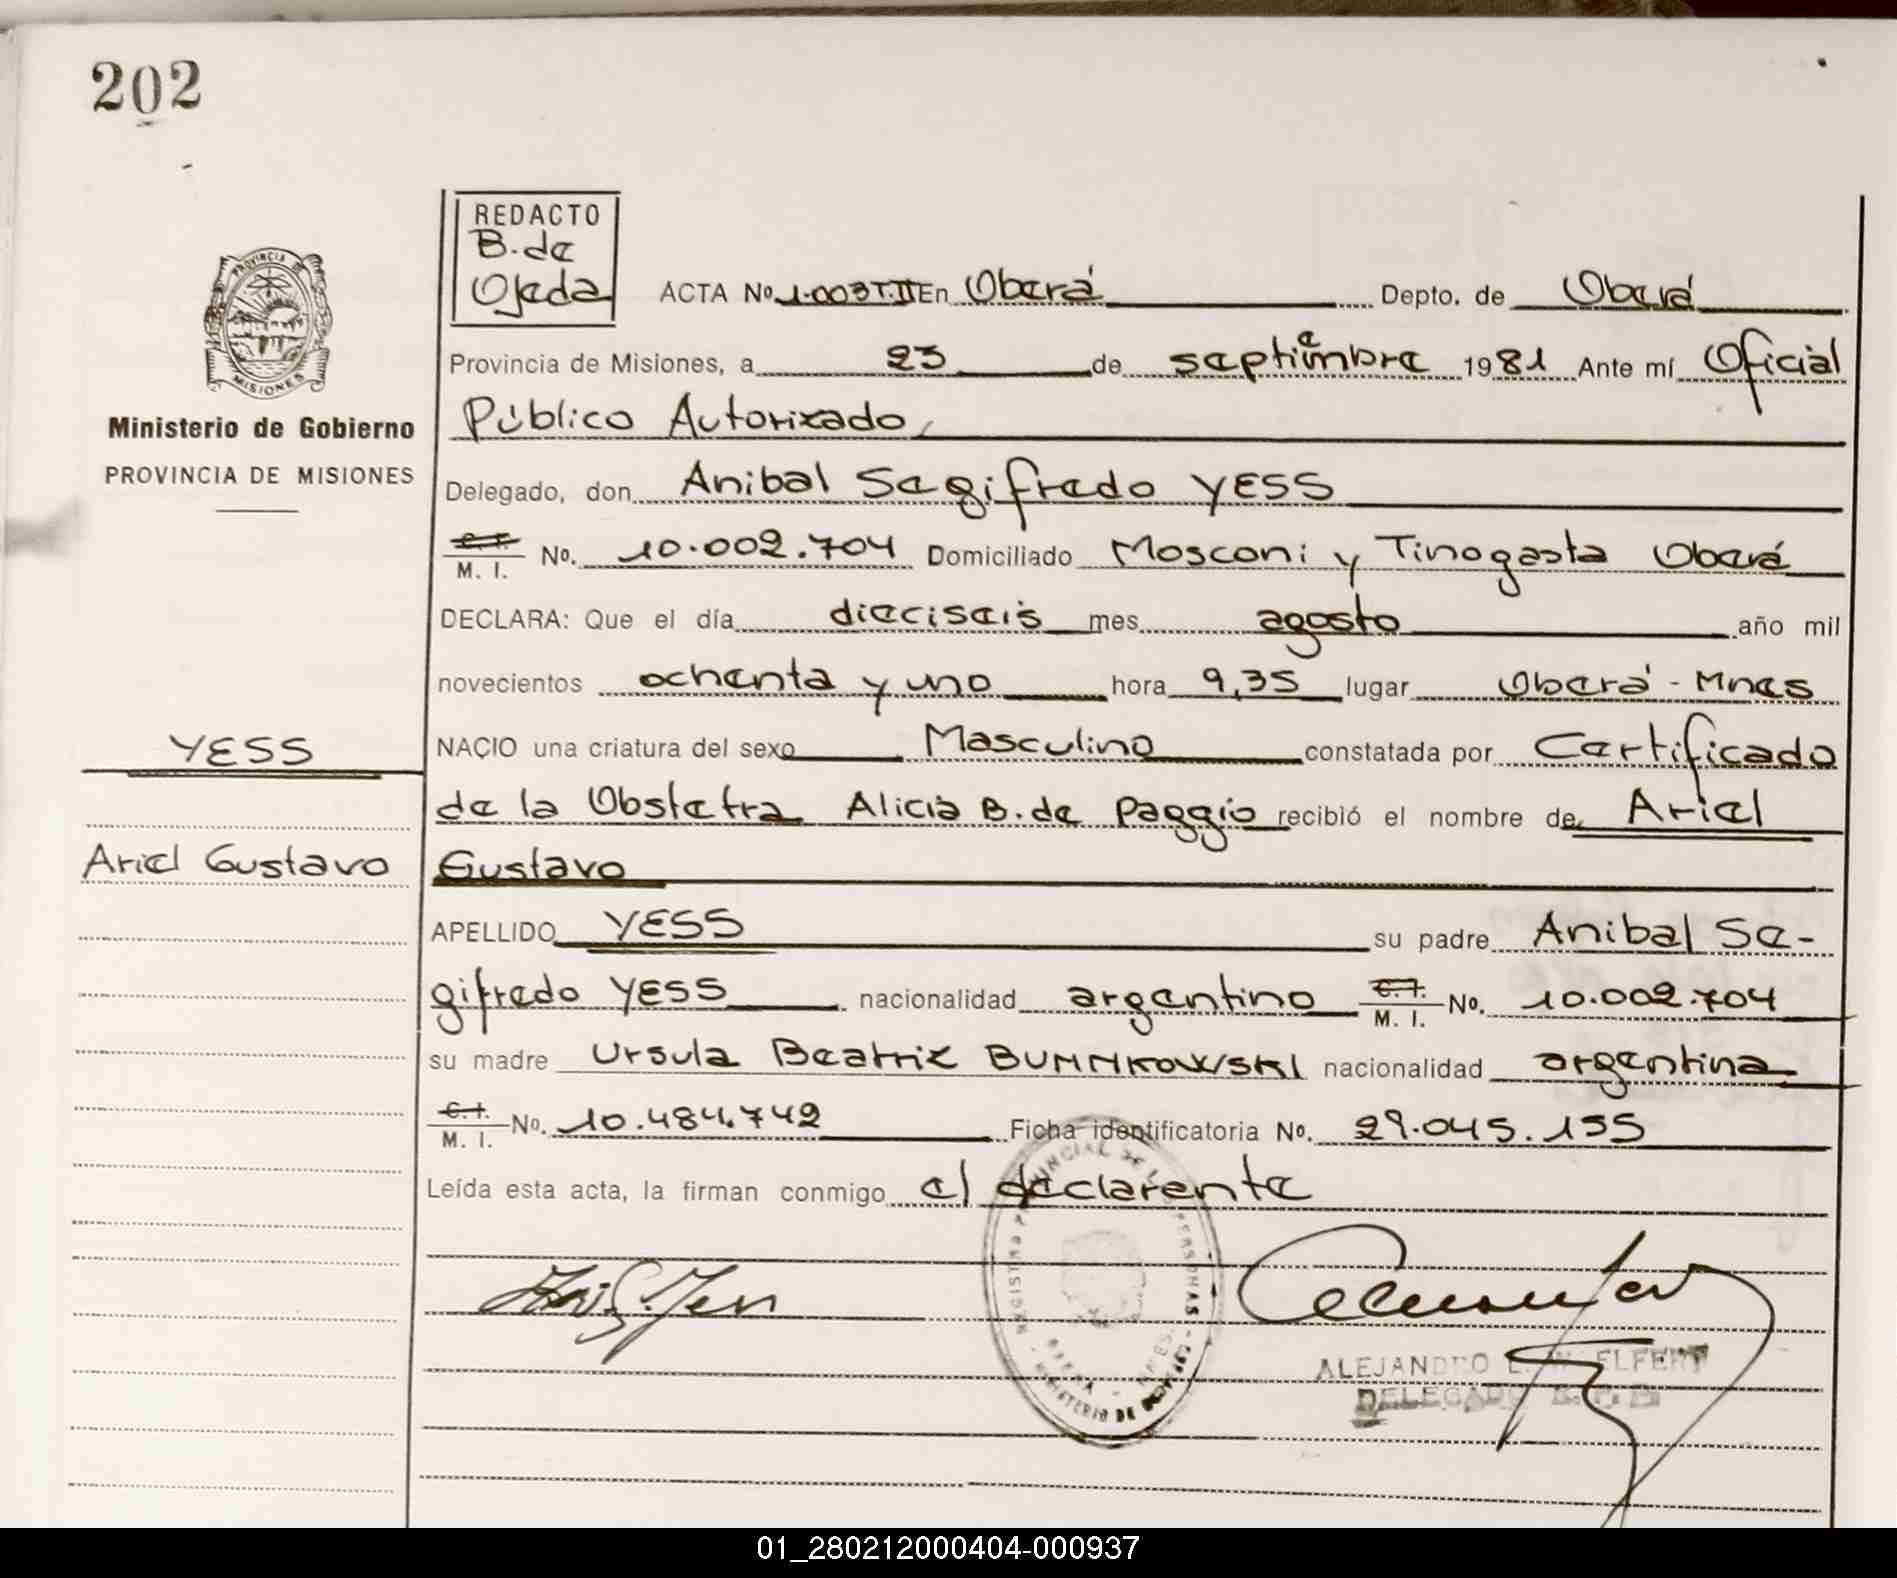 202
REDACTO
B. de
Ojeda
PROVINCIA DE
MISIONES
Ministerio de Gobierno
PROVINCIA DE MISIONES
ACTA No. 1.003 T.II En Oberá Depto. de Oberá
Provincia de Misiones, a 23 de septiembre 1981 Ante mí Oficial
Público Autorizado,
Delegado, don Anibal Segifredo YESS
C. I. M. I. No. 10.002.704 Domiciliado Mosconi y Tinogasta Oberá
DECLARA: Que el día dieciseis mes agosto año mil
novecientos ochenta y uno hora 9,35 lugar Oberá - Mnes
YESS
NACIO una criatura del sexo Masculino constatada por Certificado
de la Obstetra Alicia B. de Paggio recibió el nombre de Ariel
Ariel Gustavo
Gustavo
APELLIDO YESS su padre Anibal Se-
gifredo YESS nacionalidad argentino C. I. M. I. No. 10.002.704
su madre Ursula Beatriz nacionalidad argentina
C. I. M. I. No. 10.484.742 Ficha identificatoria No. 29.045.155
Leída esta acta, la firman conmigo el declarente
ALEJANDRO
DELEGADO
01_280212000404-000937